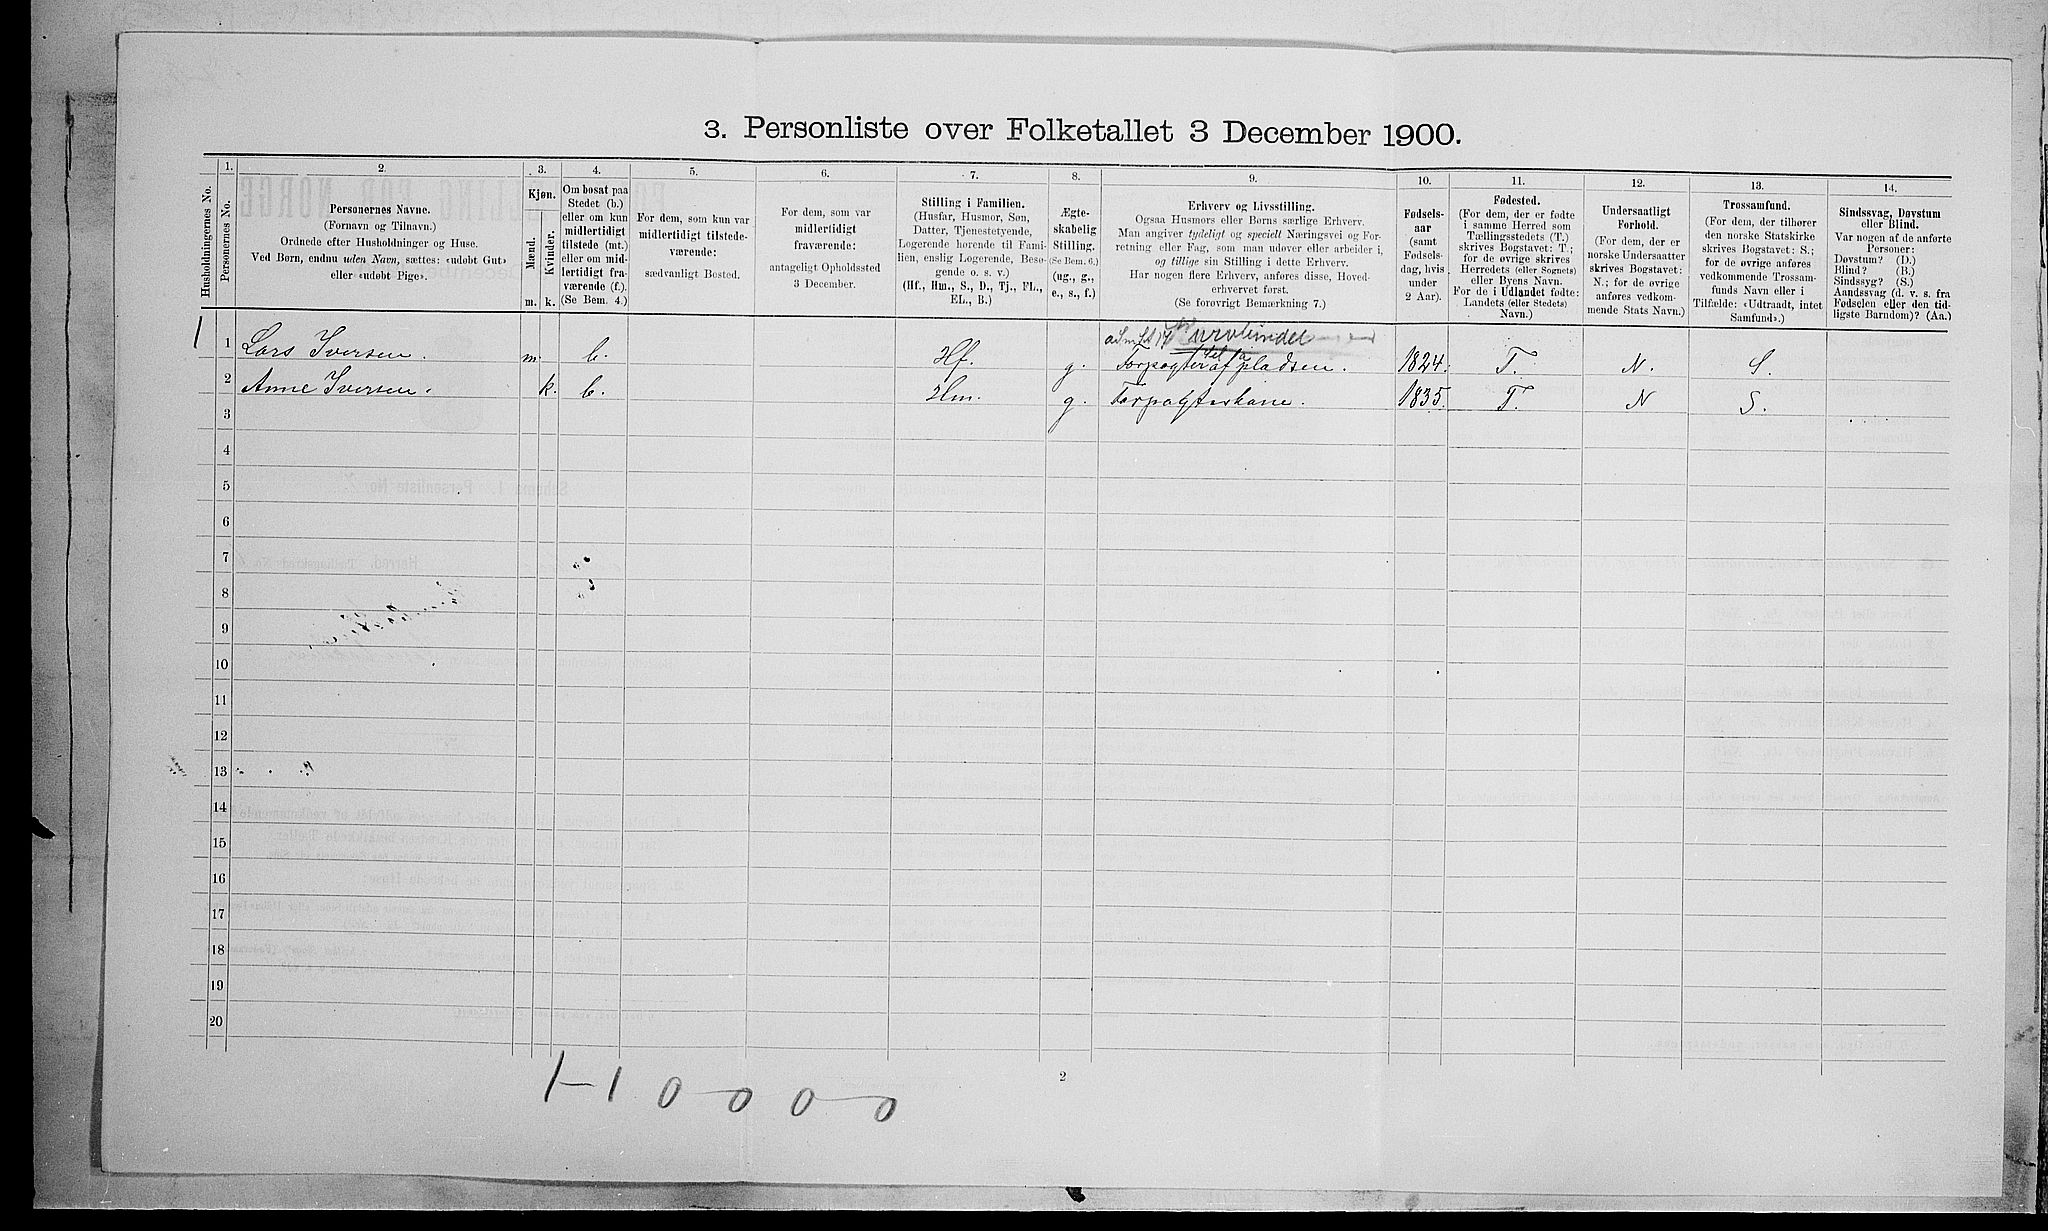 3. Personliste over Folketallet 3 December 1900.
Husholdningernes No.
1.
Personernes No.
2.
Personernes Navne.
(Fornavn og Tilnavn.)
Ordnede efter Husholdninger og Huse.
Ved Børn, endnu uden Navn, sættes: «udøbt Gut»
eller «udøbt Pige».
3.
Kjøn.
Mænd.
Kvinder.
m.
k.
4.
Om bosat paa
Stedet (b.)
eller om kun
midlertidigt
tilstede (mt.)
eller om mid-
lertidigt fra-
værende (f.).
(Se Bem. 4.)
5.
For dem, som kun var
midlertidigt tilstede-
værende:
sædvanligt Bosted.
6.
For dem, som var
midlertidigt
fraværende:
antageligt Opholdssted
3 December.
7.
Stilling i Familien.
(Husfar, Husmor, Søn,
Datter, Tjenestetyende,
Logerende hørende til Fami-
lien, enslig Logerende, Besø-
gende o. s. v.)
(Hf., Hm., S., D., Tj., FL.,
EL., B.)
8.
Ægte-
skabelig
Stilling.
(Se Bem. 6.)
(ug., g.,
e., s., f.)
9.
Erhverv og Livsstilling.
Ogsaa Husmors eller Børns særlige Erhverv.
Man angiver tydeligt og specielt Næringsvei og For-
retning eller Fag, som man udøver eller arbeider i,
og tillige sin Stilling i dette Erhverv.
Har nogen flere Erhverv, anføres disse, Hoved-
erhvervet først.
(Se forøvrigt Bemærkning 7.)
10.
Fødsels-
aar
(samt
Fødsels-
dag, hvis
under
2 Aar).
11.
Fødested.
(For dem, der er fødte
i samme Herred som
Tællingsstedets (T.)
skrives Bogstavet: T.;
for de øvrige skrives
Herredets (eller Sognets)
eller Byens Navn.
For de i Udlandet fødte:
Landets (eller Stedets)
Navn.)
12.
Undersaatligt
Forhold.
(For dem, der er
norske Undersaatter
skrives Bogstavet:
N.; for de øvrige
anføres vedkom-
mende Stats Navn.)
13.
Trossamfund.
(For dem, der tilhører
den norske Statskirke
skrives Bogstavet: S.;
for de øvrige anføres
vedkommende Trossam-
funds Navn eller i
Tilfælde: «Udtraadt, intet
Samfund».)
14.
Sindssvag, Døvstum
eller Blind.
Var nogen af de anførte
Personer:
Døvstum? (D.)
Blind? (B.)
Sindssyg? (S.)
Aandssvag (d. v. s. fra
Fødselen eller den tid-
ligste Barndom)? (Aa.)
1 1 Lars Iversen. m. b. Hf. g. Forpagter af pladsen. 1824. T. N. S.
2 Anne Iversen. k. b. Hm. g. Forpagterkone. 1835. T. N S.
3
4
5
6
7
8
9
10
11
12
13
14
15
16
17
18
19
20
1-1 0 0 0 0
2